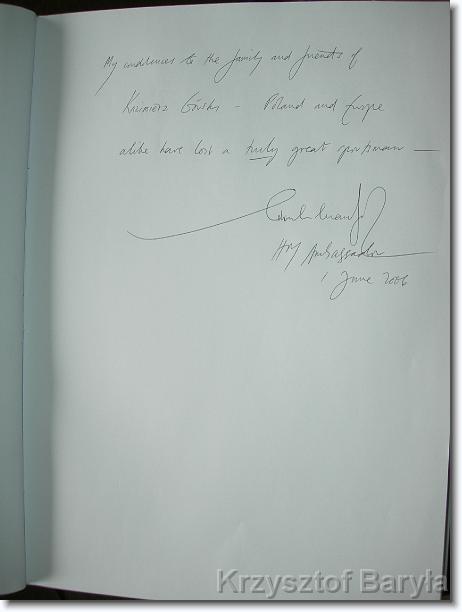 My condolences to the family and friends of
Kazimierz Górski – Poland and Europe
alike have lost a truly great sportsman —
HM Ambassador
1 June 2006
Krzysztof Baryła